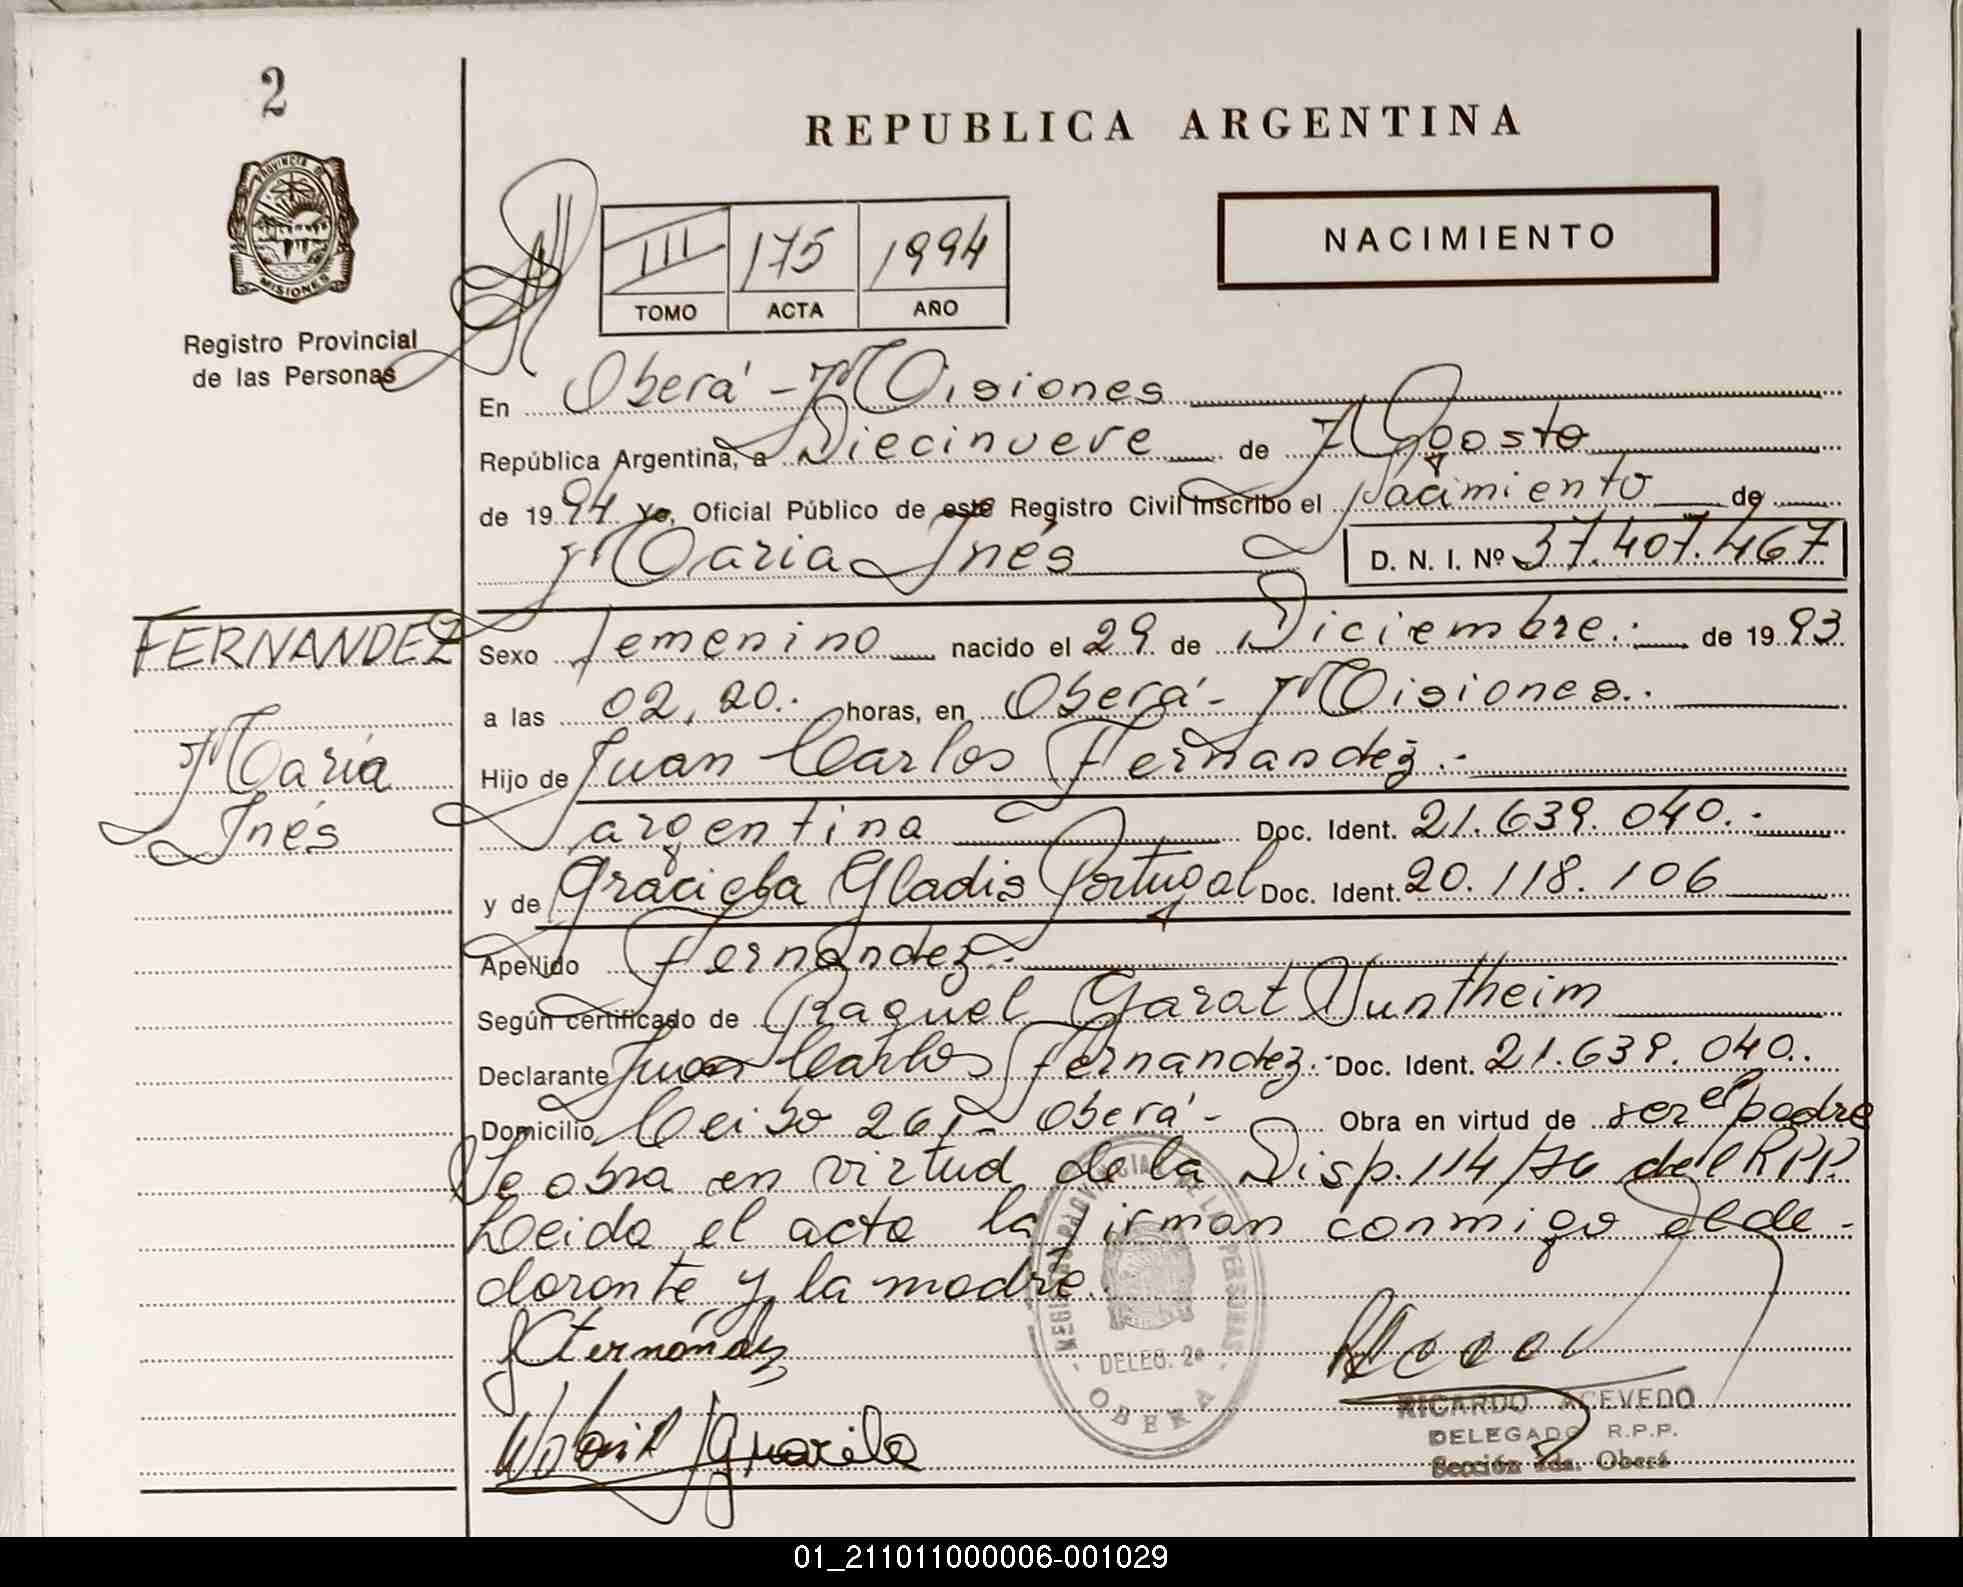 2
REPUBLICA ARGENTINA
PROVINCIA DE
MISIONES
Registro Provincial
de las Personas
III 175 1994
TOMO ACTA AÑO
NACIMIENTO
En Oberá - Misiones
República Argentina, a Diecinueve de Agosto
de 1994 Yo, Oficial Público de este Registro Civil inscribo el Nacimiento de
Maria Inés D. N. I. Nº 37.407.467
FERNANDEZ
María
Inés
Sexo Femenino nacido el 29 de Diciembre.- de 1993
a las 02,20.- horas, en Oberá - Misiones.-
Hijo de Juan Carlos Fernandez.-
argentina Doc. Ident. 21.639.040.-
y de Graciela Gladis Portugal Doc. Ident. 20.118.106
Apellido Fernandez.-
Según certificado de Raquel Garat
Declarante Juan Carlos Fernandez.- Doc. Ident. 21.639.040.
Domicilio Ceibo 261 - Oberá - Obra en virtud de ser el padre
Se obra en virtud de la Disp. 114/76 del RPP.
Leida el acta la firman conmigo el de-
clarante y la madre.
REGISTRO PROVINCIAL DE LAS PERSONAS
DELEG. 2a
OBERA
RICARDO ACEVEDO
DELEGADO R.P.P.
Sección 2da. Oberá
01_211011000006-001029